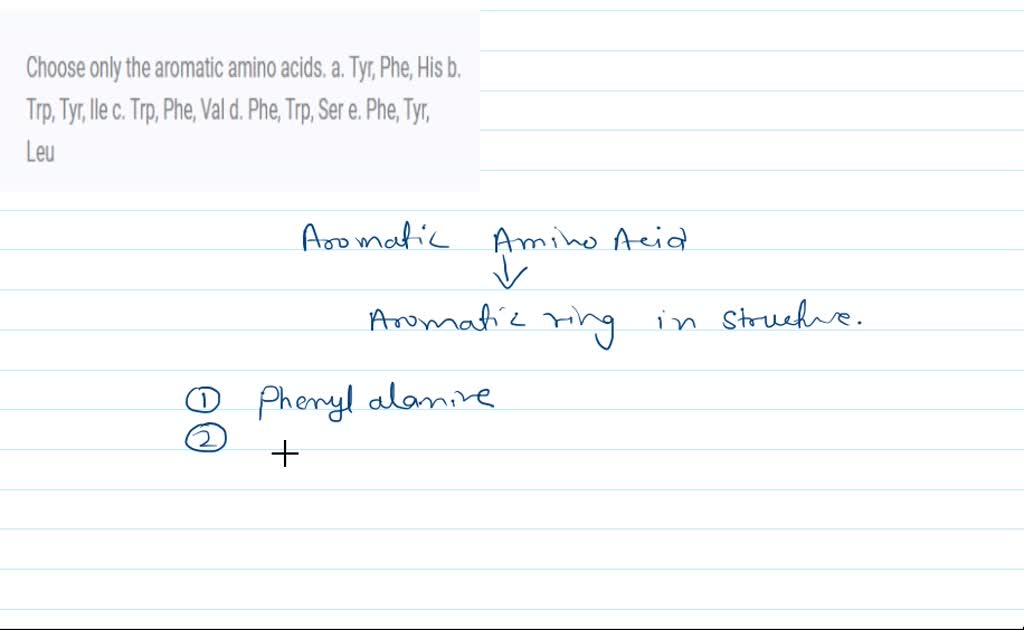 Choose only the aromatic amino acids. a. Tyr, Phe, His b.
Trp, Tyr, Ile c. Trp, Phe, Val d. Phe, Trp, Ser e. Phe, Tyr,
Leu
Aromatic Amino Acid
Aromatic ring in structure.
① Phenyl alanine
②